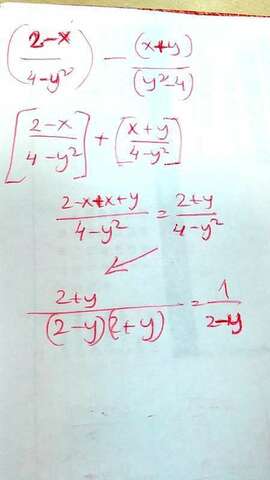 (2-x / 4-y²) - (x+y) / (y²-4)
[2-x / 4-y²] + (x+y / 4-y²)
2-x+x+y / 4-y² = 2+y / 4-y²
2+y / (2-y)(2+y) = 1 / 2-y